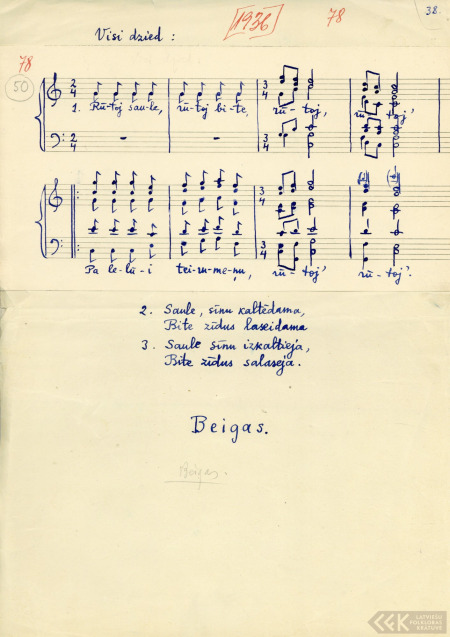 [1936] 78 38.
Visi dzied:
78
50
1. Rū-toj sau-le, rū-toj bi-te, rū-toj, rū-toj,
Pa le-lū-i tei-ru-me-ņu, rū-toj, rū-toj.
2. Saule, sīnu kaltēdama,
Bite zīdus laseidama
3. Saule sīnu izkaltieja,
Bite zīdus salaseja.
Beigas.
Beigas.
LATVIEŠU
FOLKLORAS
KRĀTUVE